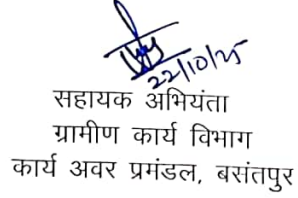 22/10/25
सहायक अभियंता
ग्रामीण कार्य विभाग
कार्य अवर प्रमंडल, बसंतपुर